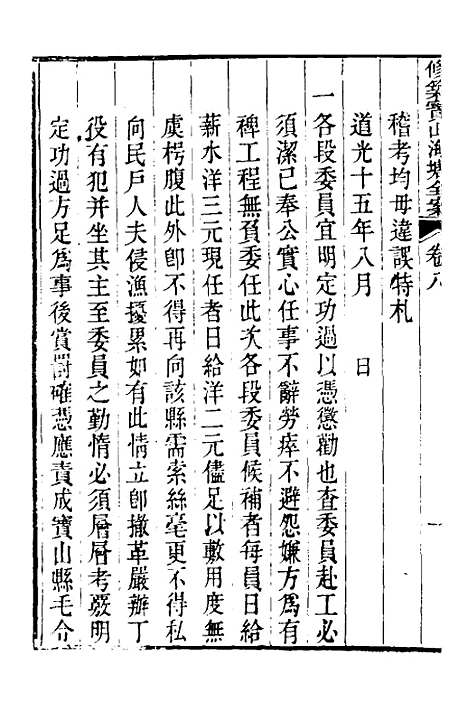 修築寶山海塘全案 卷八
稽考均毋違誤特札
道光十五年八月 日
一各段委員宜明定功過以憑懲勸也查委員赴工必
須潔己奉公實心任事不辭勞瘁不避怨嫌方爲有
裨工程無負委任此次各段委員候補者每員日給
薪水洋三元現任者日給洋二元儘足以敷用度無
虞枵腹此外卽不得再向該縣需索絲毫更不得私
向民戶人夫侵漁擾累如有此情立卽撤革嚴辦丁
役有犯并坐其主至委員之勤惰必須層層考覈明
定功過方足爲事後賞罰確憑應責成寶山縣毛令